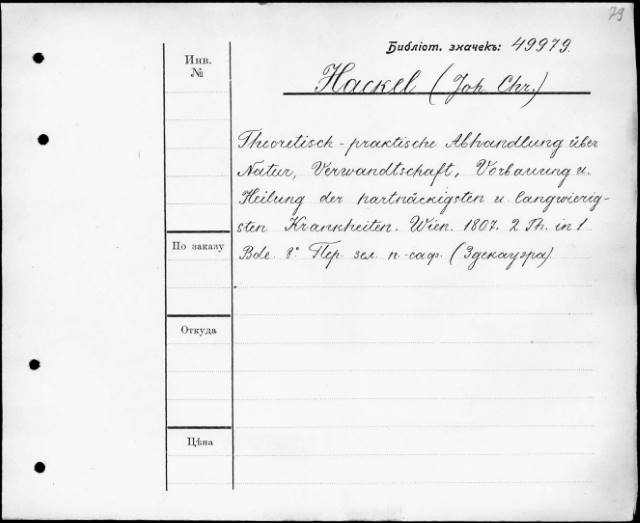 79
Библіот. значекъ: 49979.
Инв.
№
Hackel (Joh. Chr.)
Theoretisch-praktische Abhandlung über
Natur, Verwandtschaft, Vorbauung u.
Heilung der hartnäckigsten u. langwierig-
sten Krankheiten. Wien. 1807. 2 Th. in 1
По заказу
Bde. 8° Пер. зел. п-саф. (Здекауэра)
Откуда
Цѣна